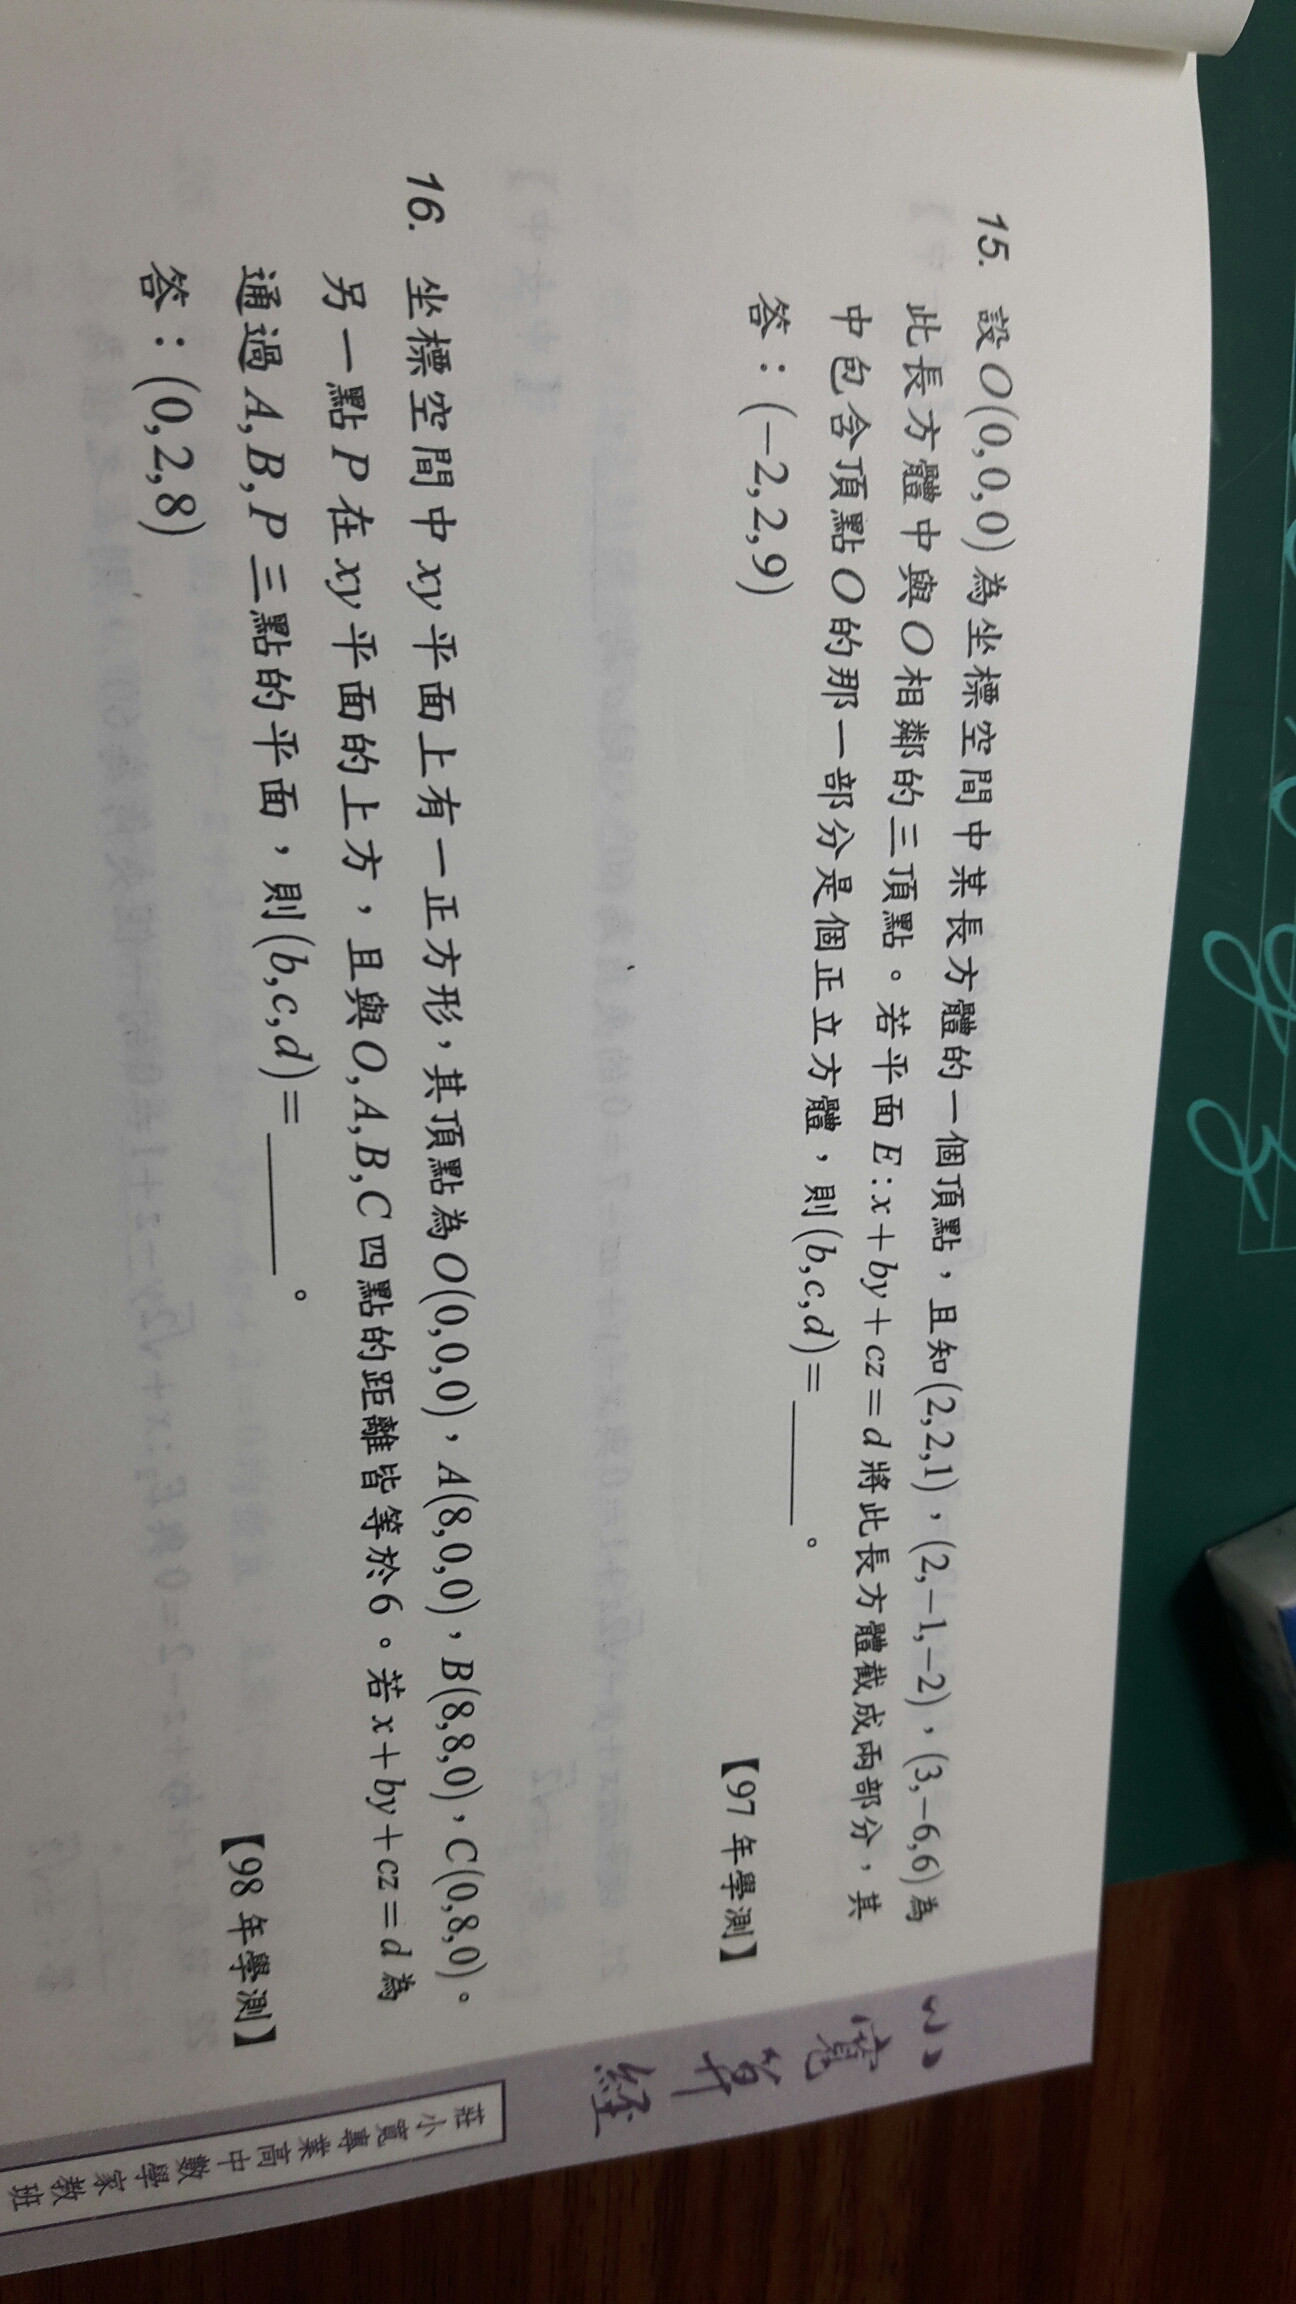 15. 設O(0,0,0)為坐標空間中某長方體的一個頂點，且知(2,2,1)，(2,-1,-2)，(3,-6,6)為
此長方體中與O相鄰的三頂點。若平面E:x+by+cz=d將此長方體截成兩部分，其
中包含頂點O的那一部分是個正立方體，則(b,c,d)=______。
答：(-2,2,9)
【97年學測】
16. 坐標空間中xy平面上有一正方形，其頂點為O(0,0,0)，A(8,0,0)，B(8,8,0)，C(0,8,0)。
另一點P在xy平面的上方，且與O,A,B,C四點的距離皆等於6。若x+by+cz=d為
通過A,B,P三點的平面，則(b,c,d)=______。
答：(0,2,8)
【98年學測】
小寬算經
莊小寬專業高中數學家教班